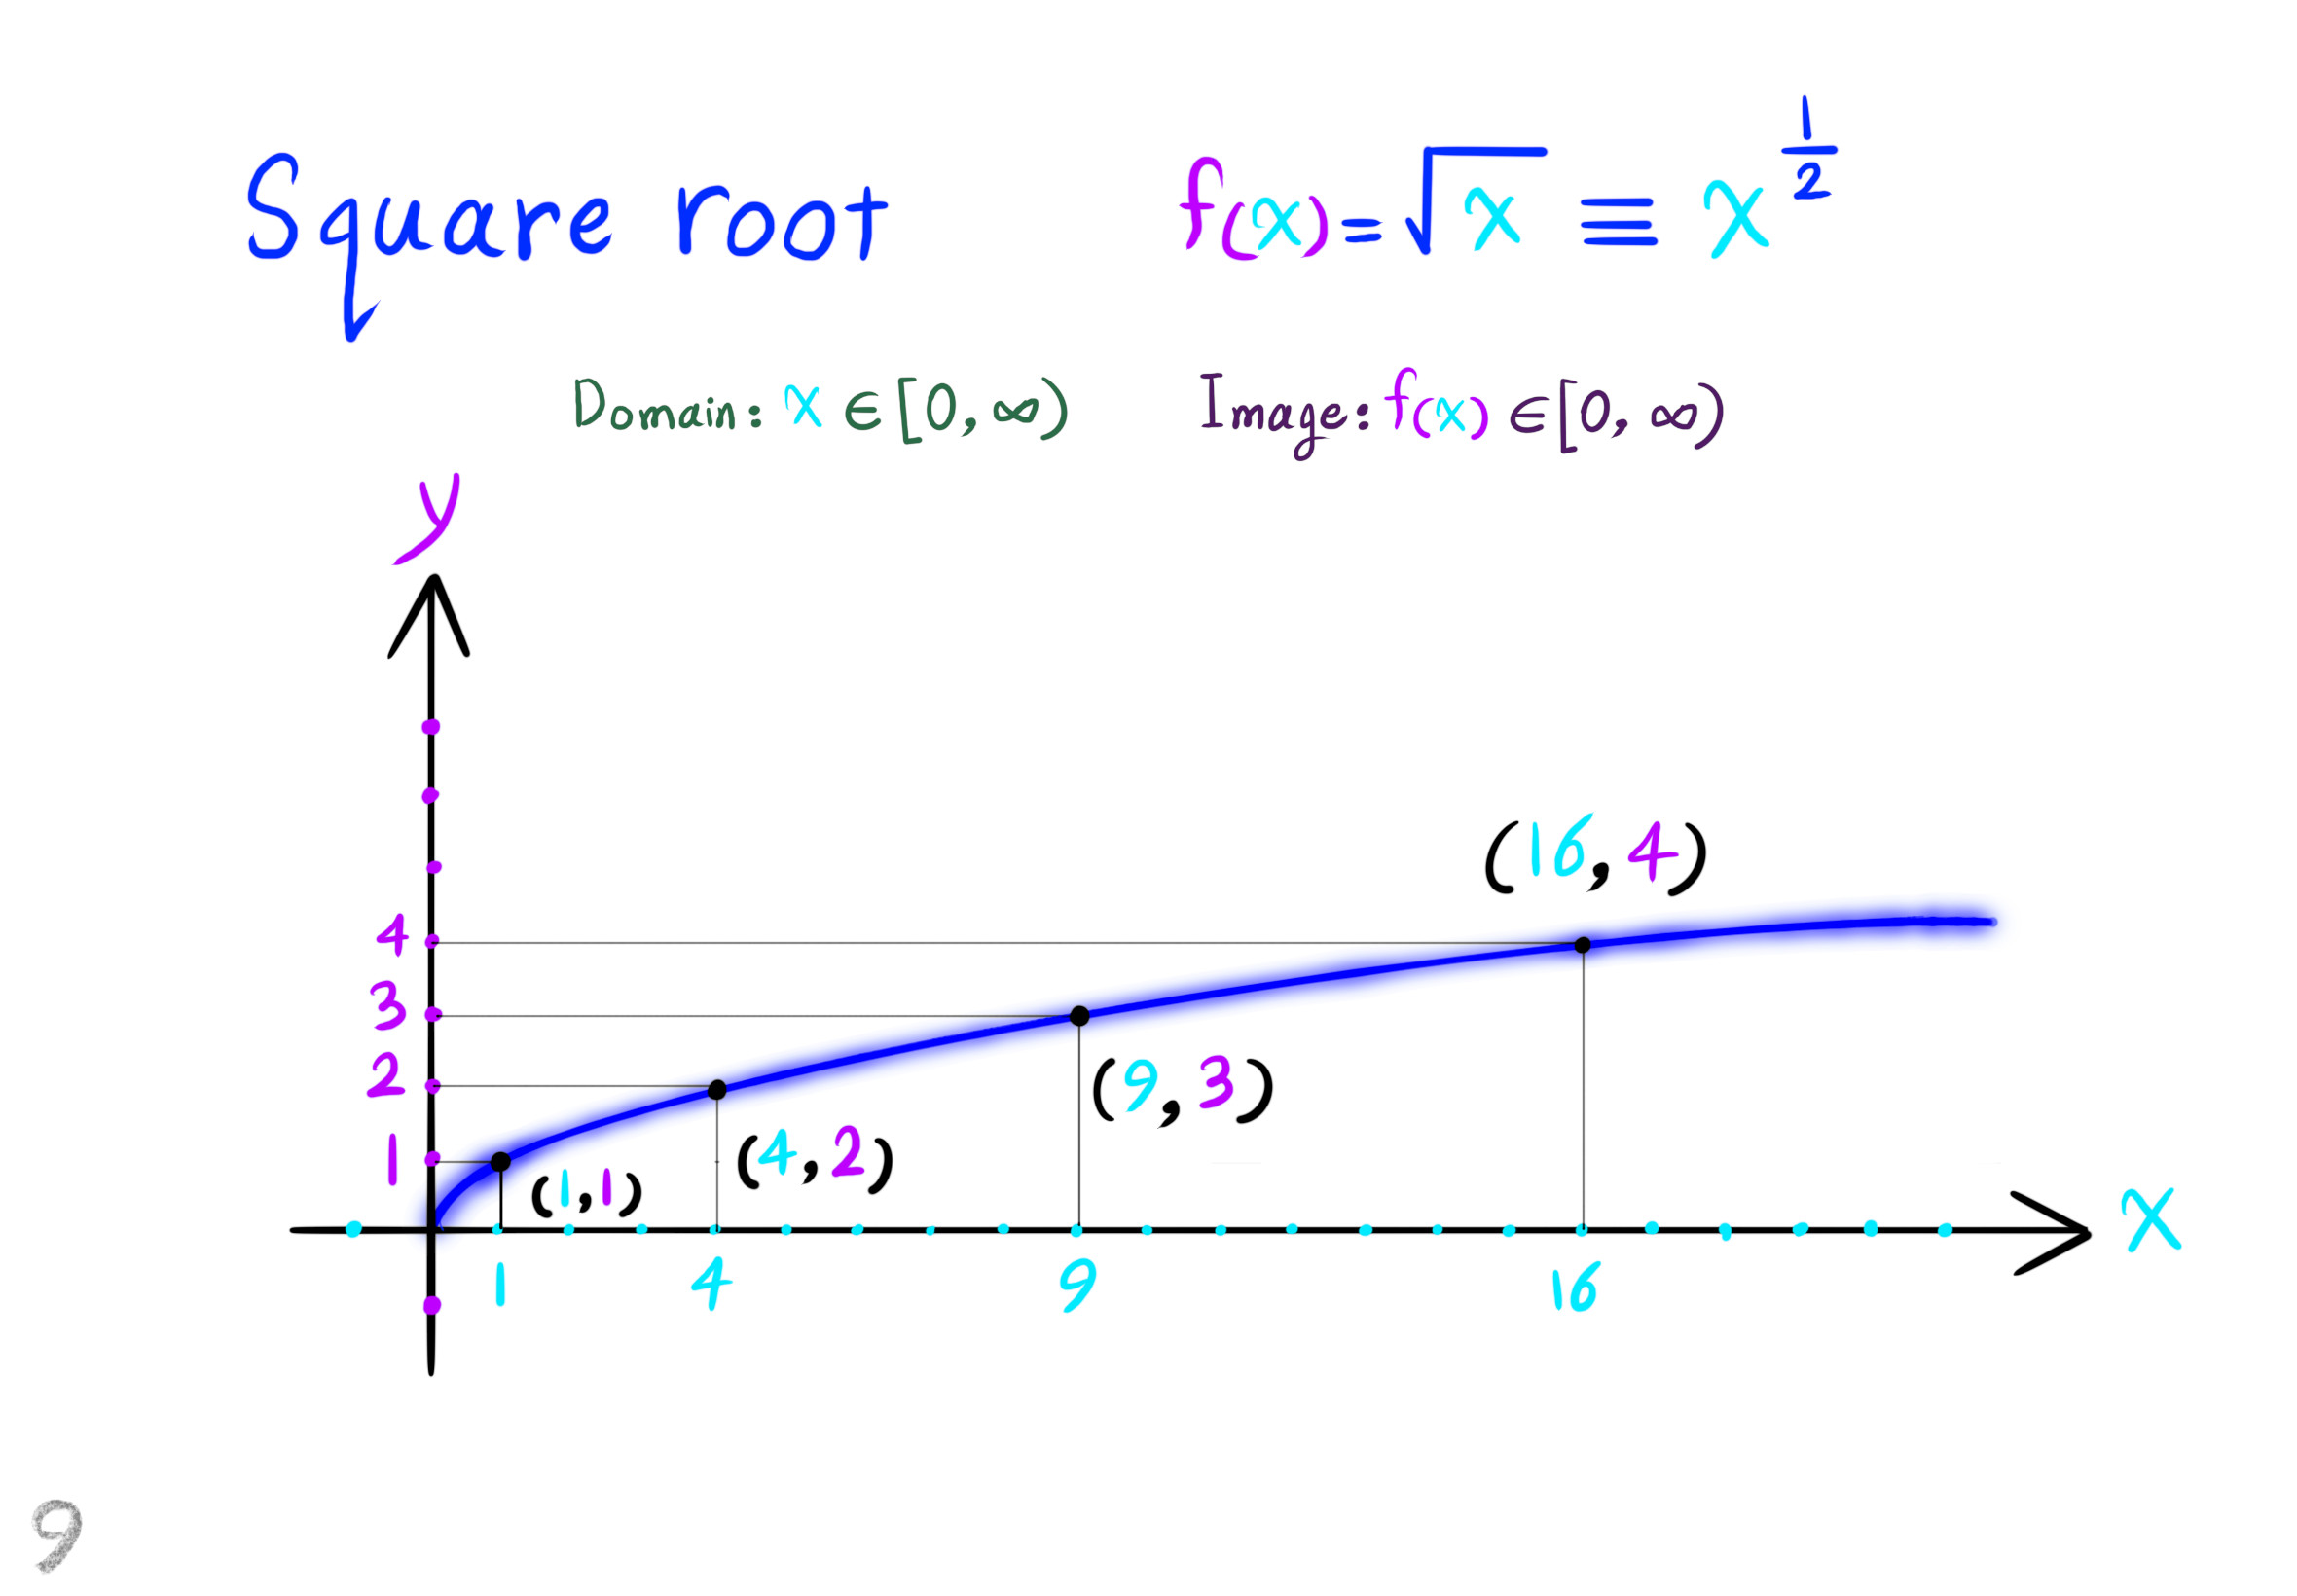 Square root
f(x)=√x ≡ x^{1/2}
Domain: x ∈ [0, ∞)
Image: f(x) ∈ [0, ∞)
y
(16, 4)
4
3
2
(9, 3)
(4, 2)
1
(1, 1)
x
1 4 9 16
9